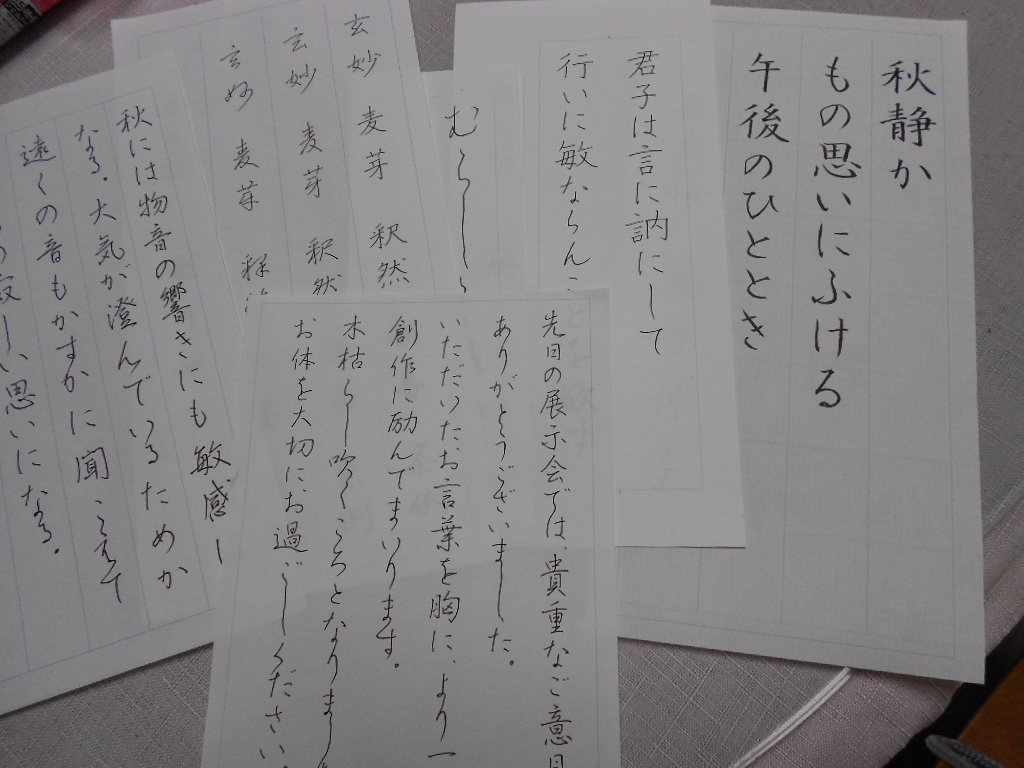 秋静か
もの思いにふける
午後のひととき
君子は言に訥にして
行いに敏ならん
むらし
玄妙 麦芽 釈然
玄妙 麦芽 釈然
玄妙 麦芽 釈
先日の展示会では、貴重なご意見
ありがとうございました。
いただいたお言葉を胸に、より一
創作に励んでまいります。
木枯らし吹くころとなりました
お体を大切にお過ごしください
秋には物音の響きにも敏感し
なる。大気が澄んでいるためか
遠くの音もかすかに聞こえて
寂しい思いになる。